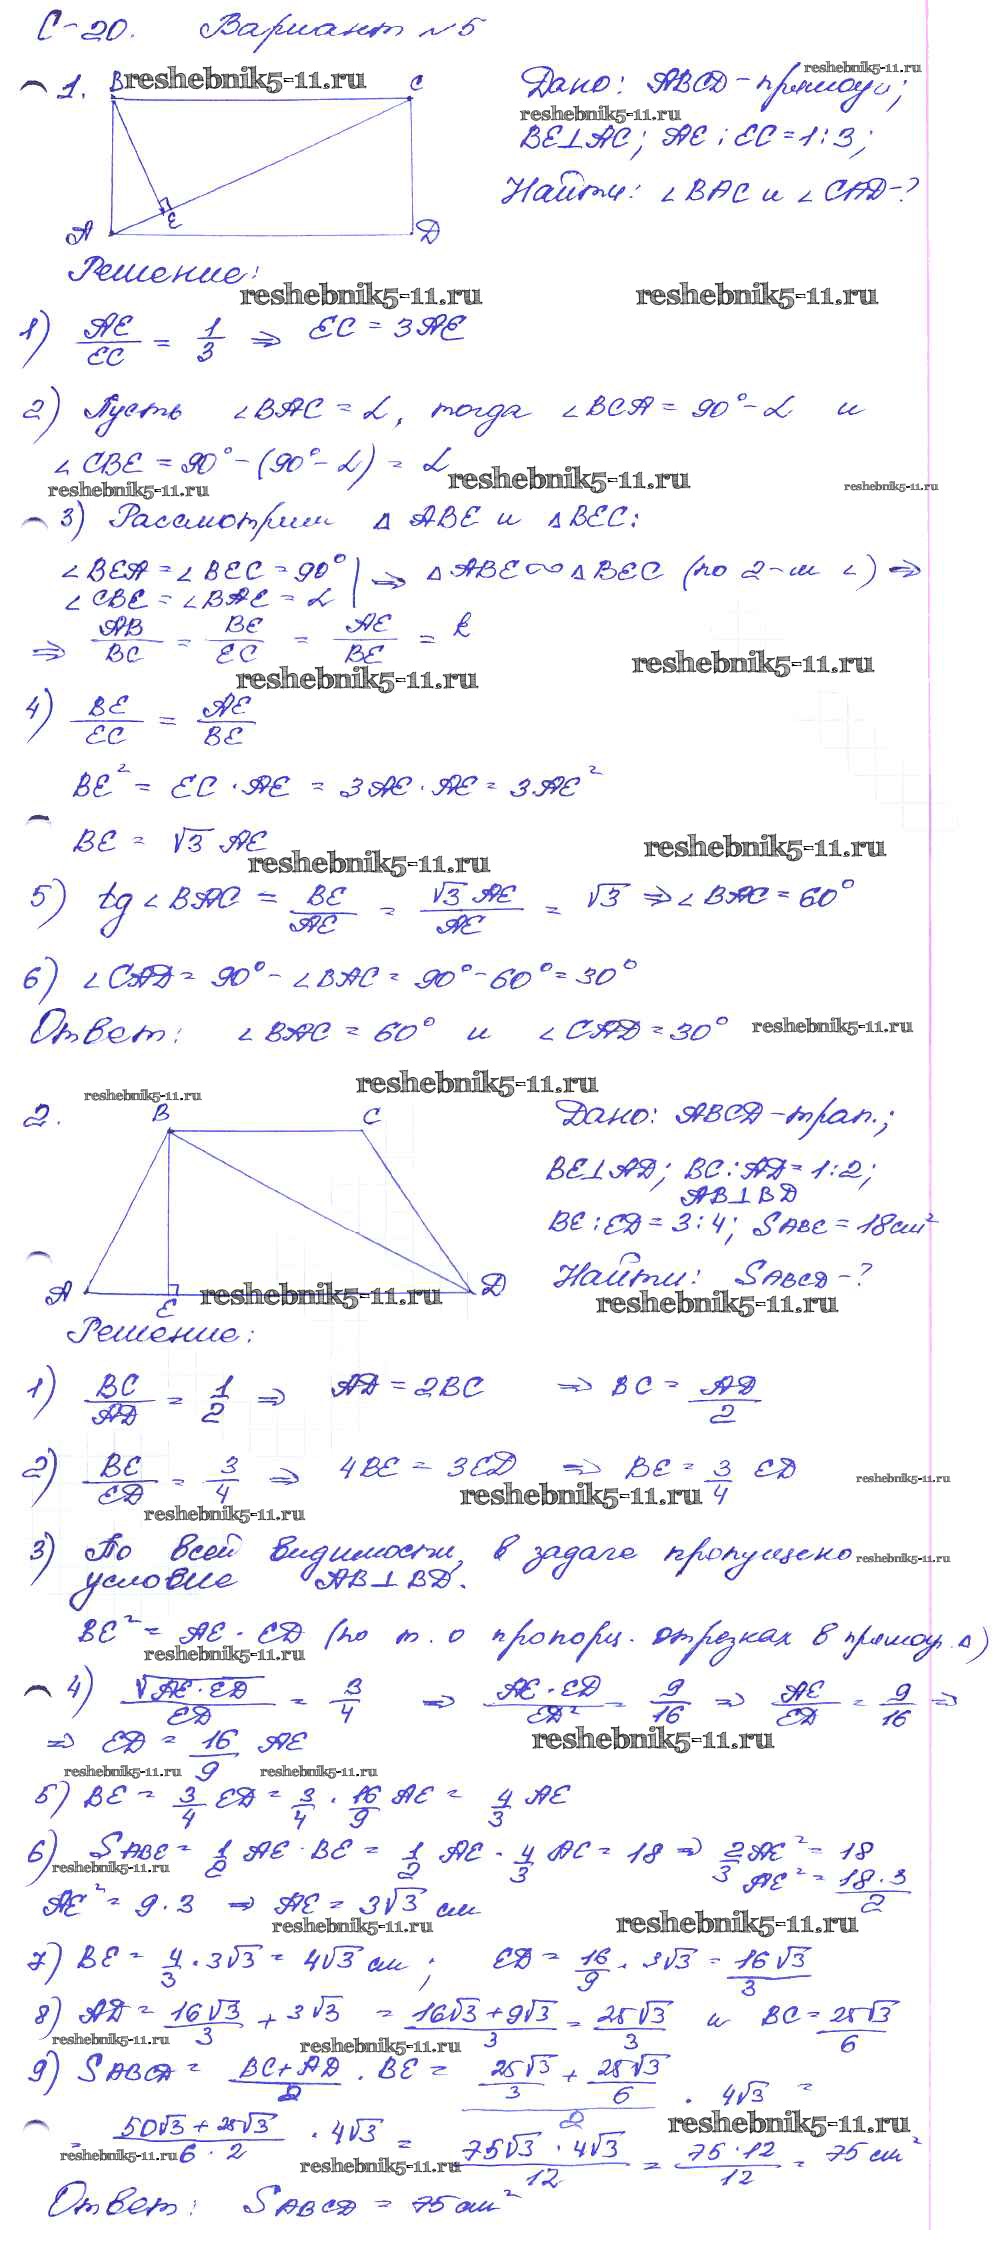 С-20. Вариант №5
1. B C
A E D
Дано: ABCD - прямоуг;
BE⊥AC; AE:EC=1:3;
Найти: ∠BAC и ∠CAD-?
Решение:
1) AE/EC = 1/3 ⇒ EC = 3AE
2) Пусть ∠BAC = α, тогда ∠BCA = 90°-α и
∠CBE = 90°-(90°-α) = α
3) Рассмотрим △ ABE и △BEC:
∠BEA = ∠BEC = 90° | ⇒ △ABE ∾ △BEC (по 2-м ∠) ⇒
∠CBE = ∠BAE = α
⇒ AB/BC = BE/EC = AE/BE = k
4) BE/EC = AE/BE
BE² = EC · AE = 3AE · AE = 3AE²
BE = √3 AE
5) tg∠BAC = BE/AE = √3 AE/AE = √3 ⇒ ∠BAC = 60°
6) ∠CAD = 90° - ∠BAC = 90° - 60° = 30°
Ответ: ∠BAC = 60° и ∠CAD = 30°
2. B C
A E D
Дано: ABCD - трап.;
BE⊥AD; BC:AD=1:2;
AB⊥BD
BE:ED=3:4; SABE = 18см²
Найти: SABCD-?
Решение:
1) BC/AD = 1/2 ⇒ AD = 2BC ⇒ BC = AD/2
2) BE/ED = 3/4 ⇒ 4BE = 3ED ⇒ BE = 3/4 ED
3) По всей видимости, в задаче пропущено
условие AB⊥BD.
BE² = AE · ED (по т. о пропорц. отрезках в прямоуг. △)
4) √AE·ED/ED = 3/4 ⇒ AE·ED/ED² = 9/16 ⇒ AE/ED = 9/16 ⇒
⇒ ED = 16/9 AE
5) BE = 3/4 ED = 3/4 · 16/9 AE = 4/3 AE
6) SABE = 1/2 AE · BE = 1/2 AE · 4/3 AE = 18 ⇒ 2/3 AE² = 18
AE² = 18·3/2
AE² = 9·3 ⇒ AE = 3√3 см
7) BE = 4/3 · 3√3 = 4√3 см; ED = 16/9 · 3√3 = 16√3/3
8) AD = 16√3/3 + 3√3 = 16√3+9√3/3 = 25√3/3 и BC = 25√3/6
9) SABCD = BC+AD/2 · BE = 25√3/3 + 25√3/6 / 2 · 4√3 =
= 50√3+25√3/6·2 · 4√3 = 75√3 · 4√3/12 = 75·12/12 = 75 см²
Ответ: SABCD = 75 см²
reshebnik5-11.ru